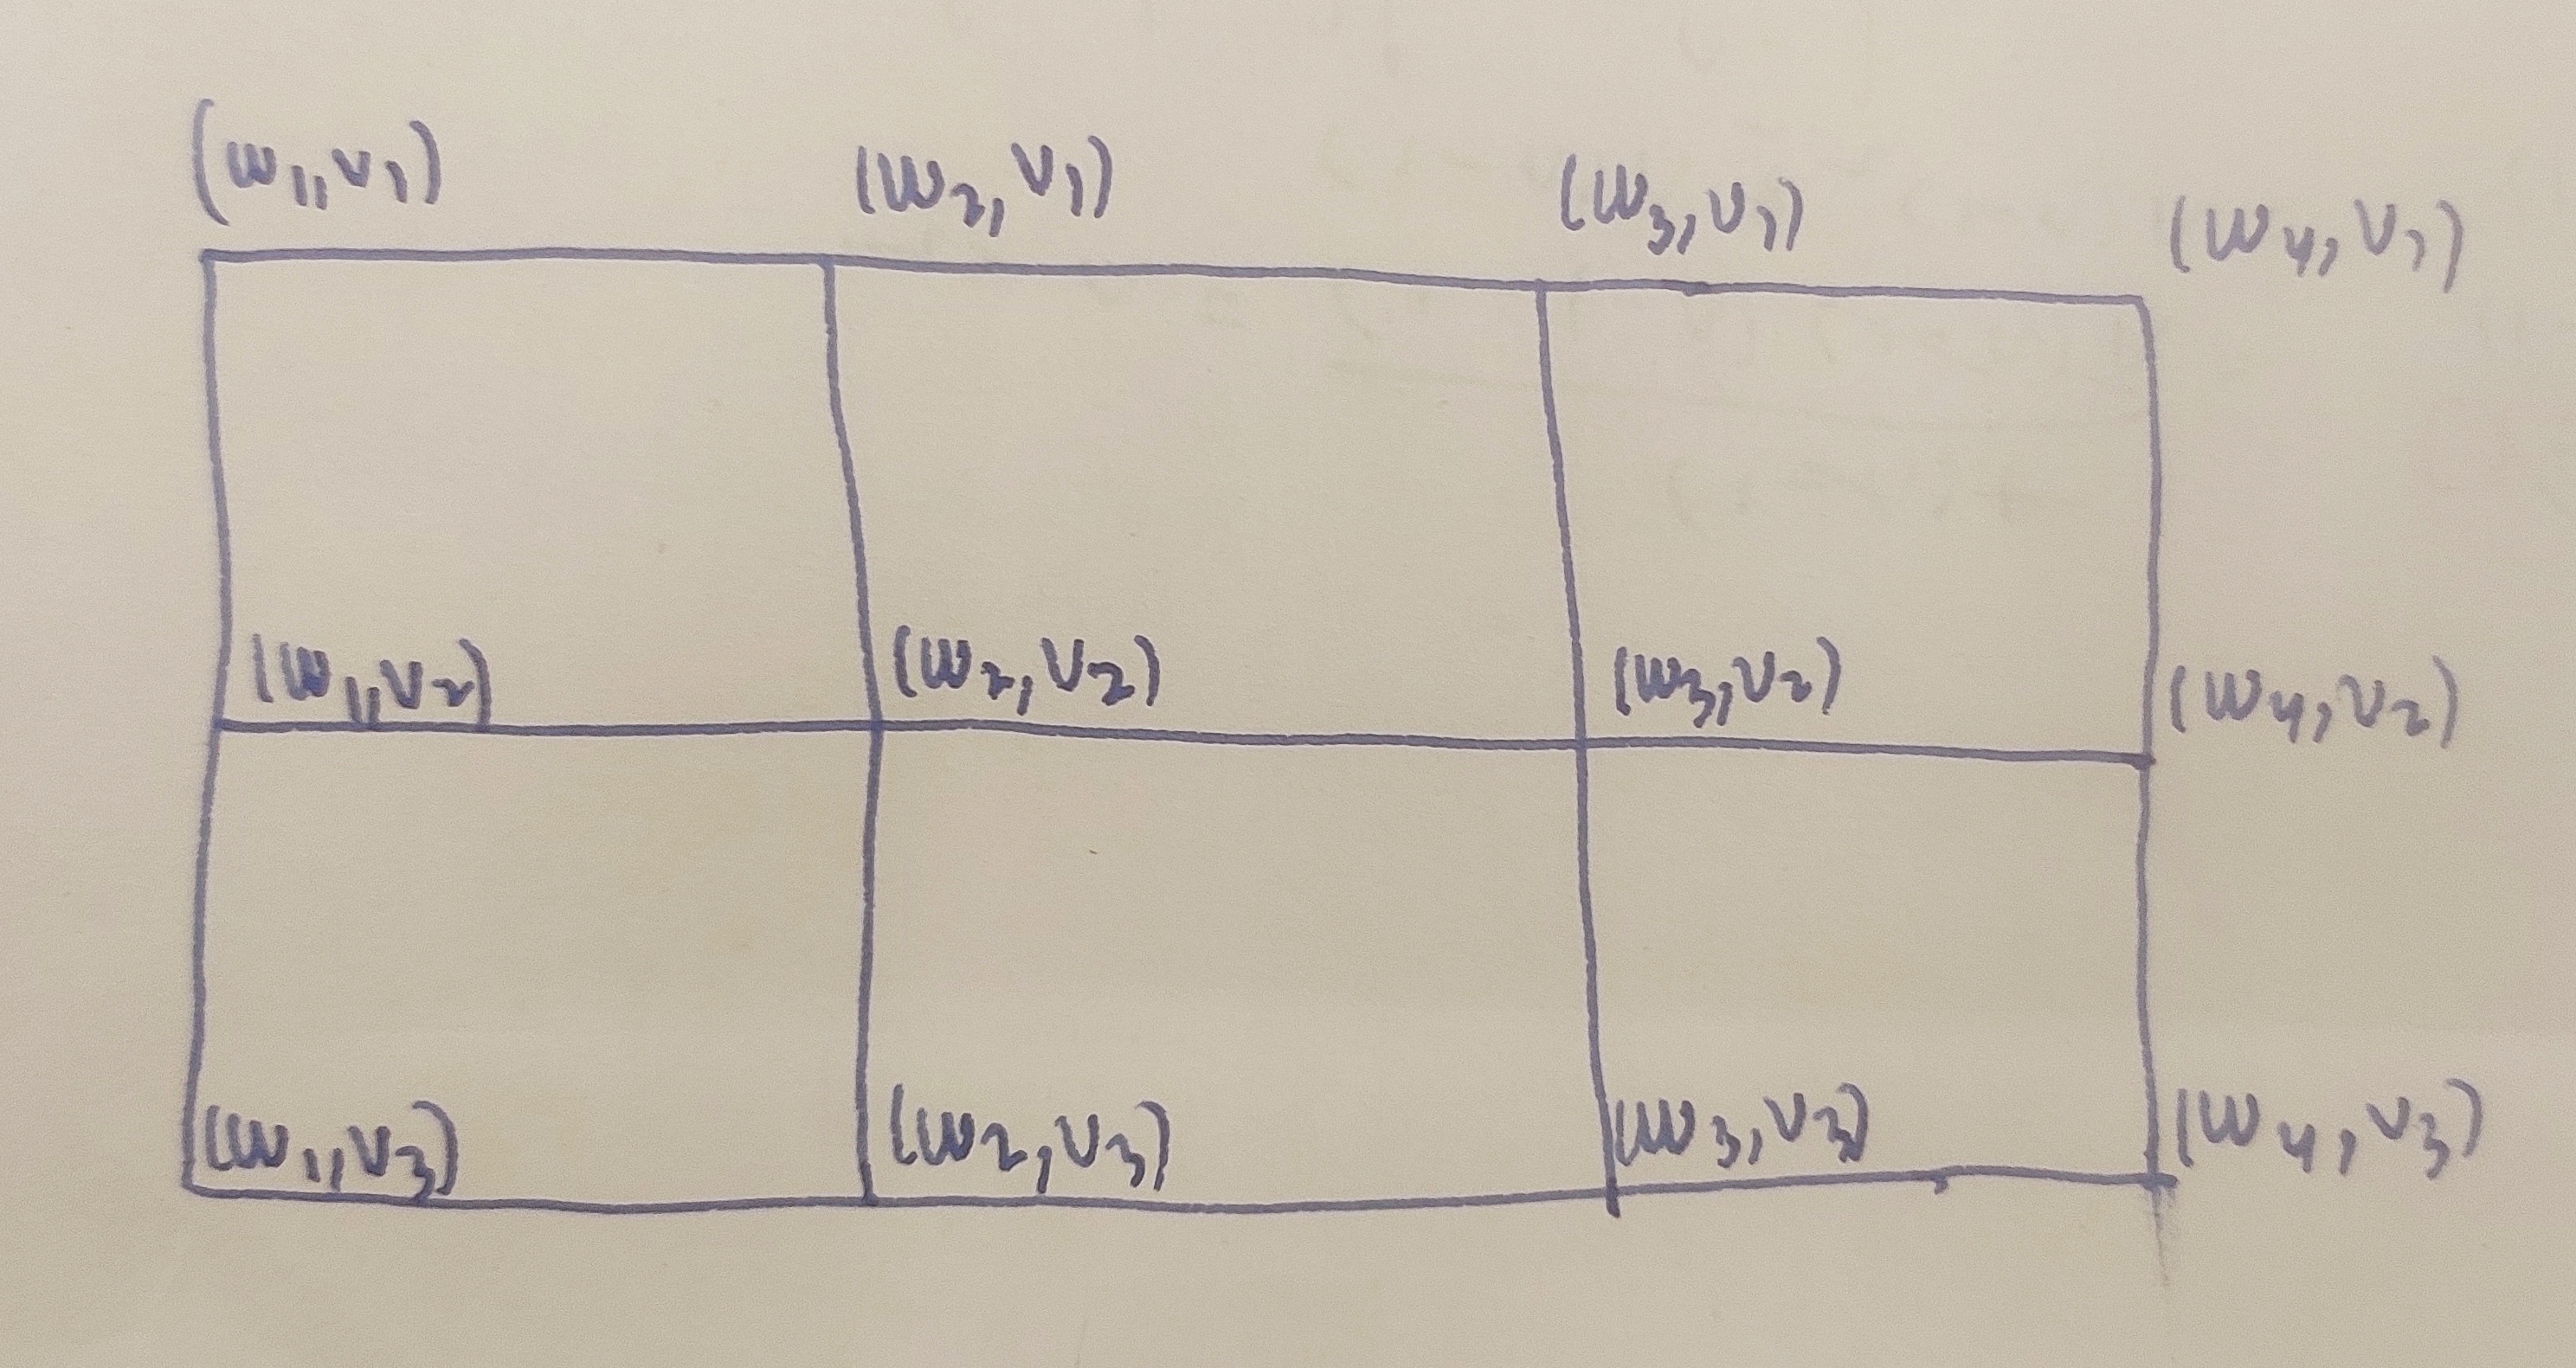 (w1,v1) (w2,v1) (w3,v1) (w4,v1)
(w1,v2) (w2,v2) (w3,v2) (w4,v2)
(w1,v3) (w2,v3) (w3,v3) (w4,v3)